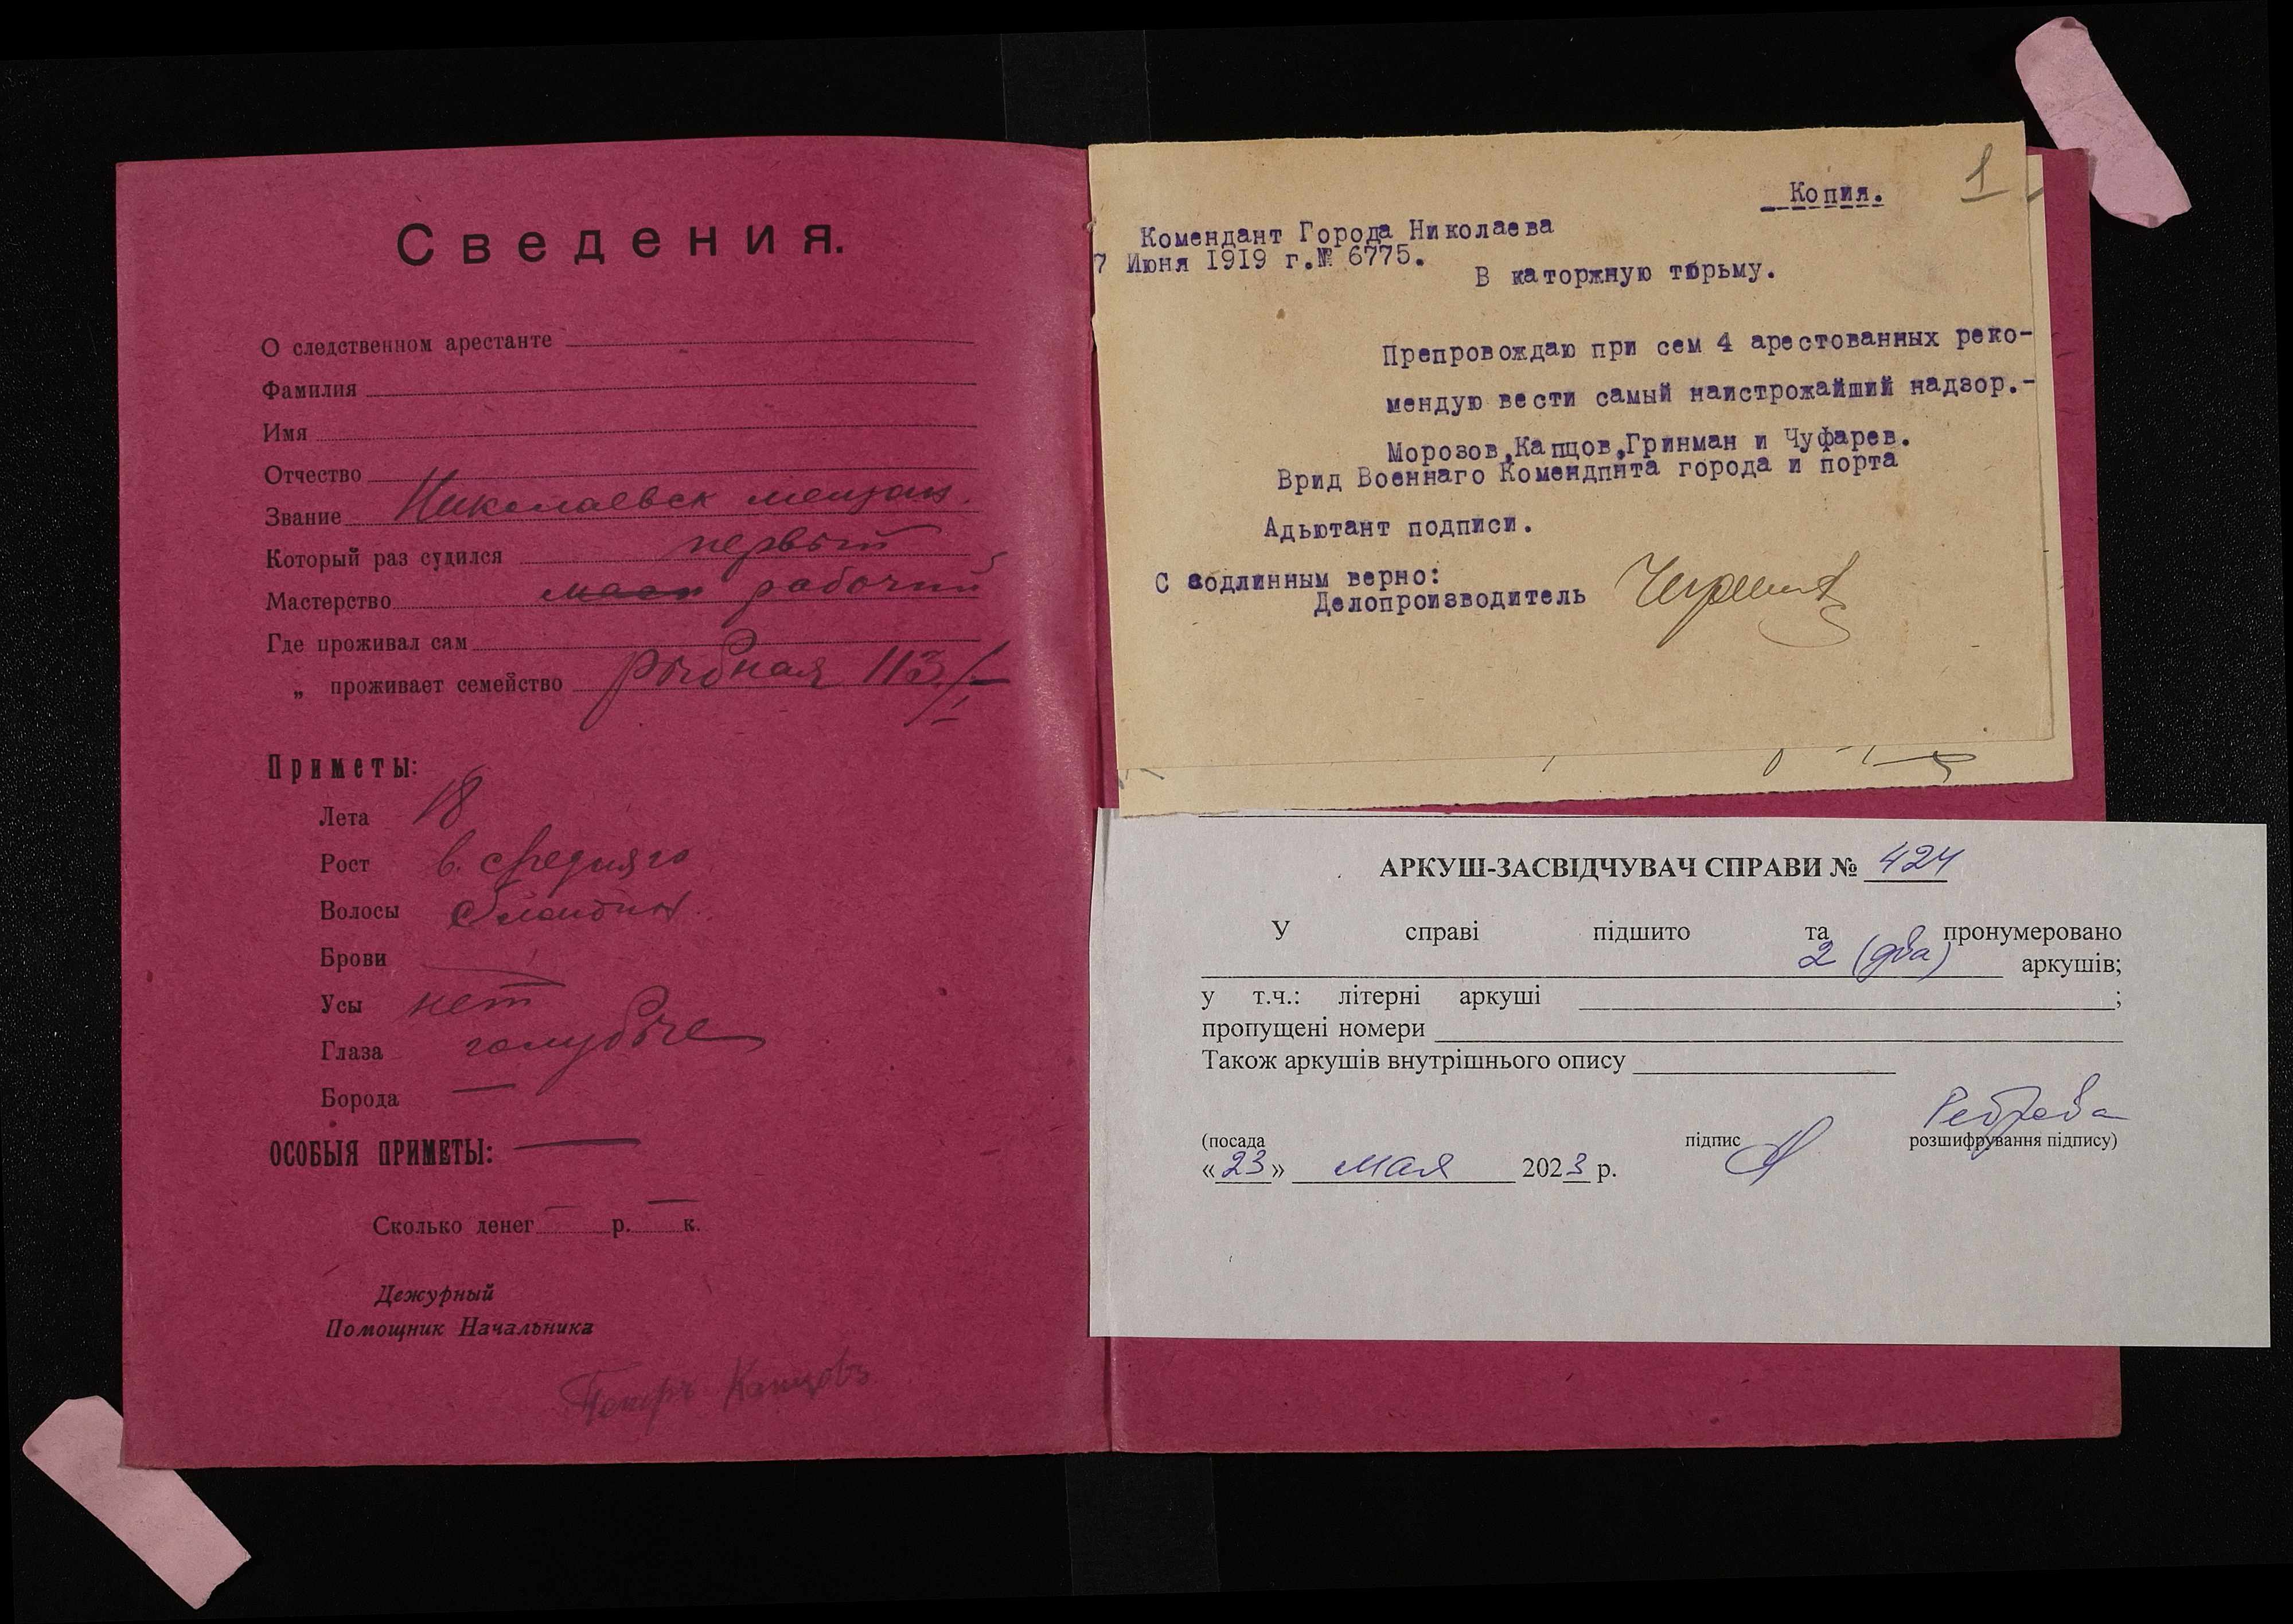 Сведения.
О следственном арестанте
Фамилия
Имя
Отчество
Звание Николаевск мещан.
Который раз судился первый
Мастерство рабочий
Где проживал сам
„ проживает семейство Рыбная 113/1
Приметы:
Лета 18
Рост в. средняго
Волосы блондин.
Брови
Усы нет
Глаза голубые
Борода —
ОСОБЫЯ ПРИМЕТЫ: —
Сколько денег — р. — к.
Дежурный
Помощник Начальника
Петръ Капцовъ
1
Копия.
Комендант Города Николаева
7 Июня 1919 г.№ 6775.
В каторжную тюрьму.
Препровождаю при сем 4 арестованных реко-
мендую вести самый наистрожайший надзор.-
Морозов,Капцов,Гринман и Чуфарев.
Врид Военнаго Комендпнта города и порта
Адьютант подписи.
С подлинным верно:
Делопроизводитель
АРКУШ-ЗАСВІДЧУВАЧ СПРАВИ № 424
У справі підшито та пронумеровано
2 (два) аркушів;
у т.ч.: літерні аркуші ;
пропущені номери
Також аркушів внутрішнього опису
(посада підпис розшифрування підпису)
«23» мая 2023 р.